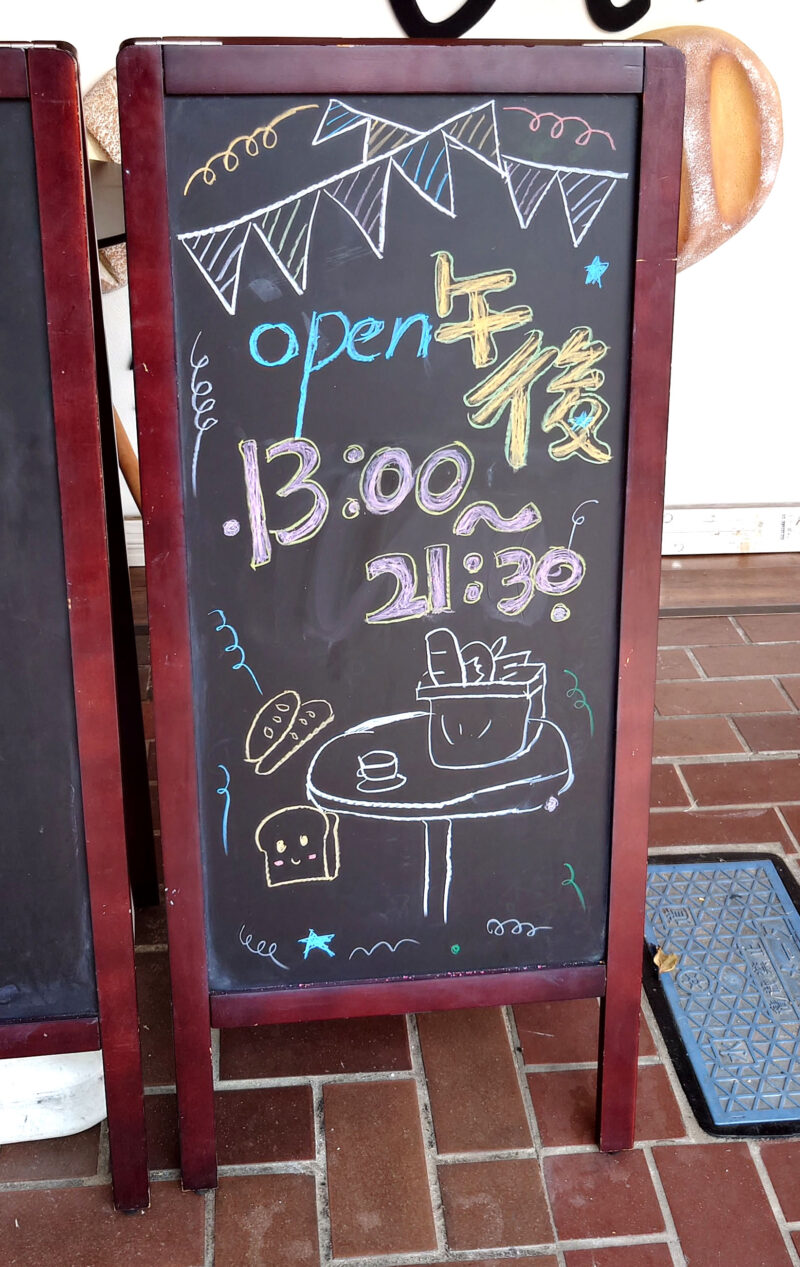 open午後
13:00~
21:30